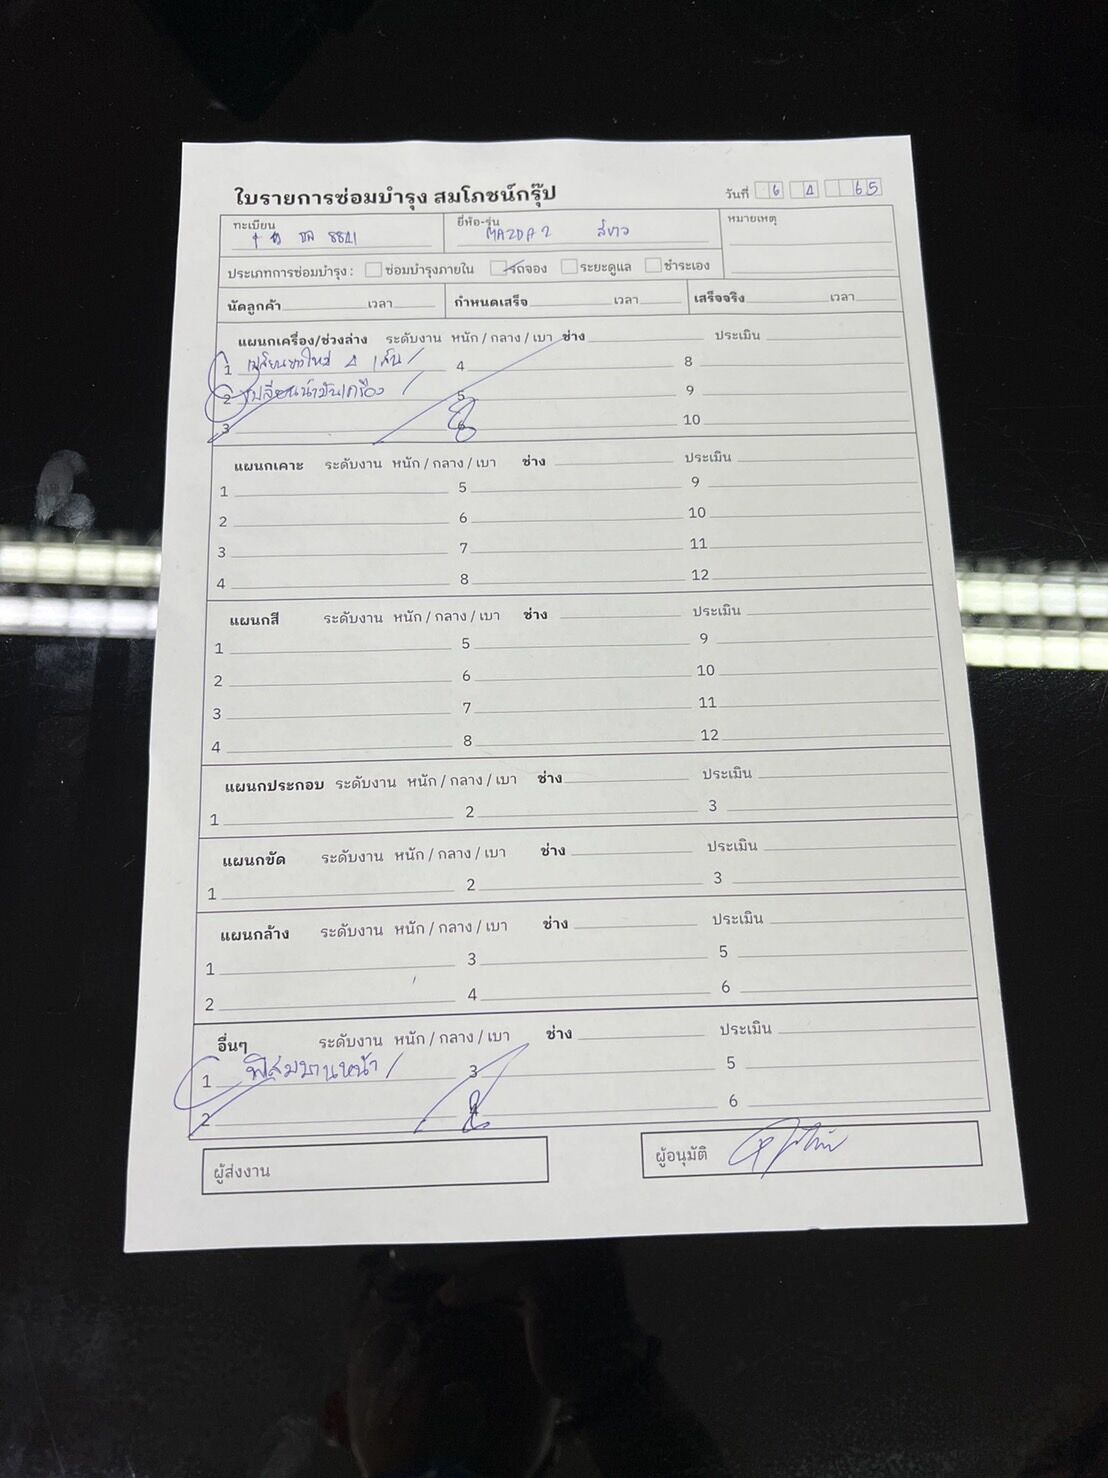 ใบรายการซ่อมบำรุง สมโภชน์กรุ๊ป
วันที่ 6 4 65
ทะเบียน
ยี่ห้อ-รุ่น MAZDA 2 สีขาว
หมายเหตุ
ประเภทการซ่อมบำรุง : ซ่อมบำรุงภายใน รถจอง ระยะดูแล ชำระเอง
นัดลูกค้า เวลา กำหนดเสร็จ เวลา เสร็จจริง เวลา
แผนกเครื่อง/ช่วงล่าง ระดับงาน หนัก / กลาง / เบา ช่าง ประเมิน
1 เปลี่ยนยางใหม่ 4 เส้น / 4 8
2 เปลี่ยนน้ำมันเครื่อง / 5 9
3 6 10
แผนกเคาะ ระดับงาน หนัก / กลาง / เบา ช่าง ประเมิน
1 5 9
2 6 10
3 7 11
4 8 12
แผนกสี ระดับงาน หนัก / กลาง / เบา ช่าง ประเมิน
1 5 9
2 6 10
3 7 11
4 8 12
แผนกประกอบ ระดับงาน หนัก / กลาง / เบา ช่าง ประเมิน
1 2 3
แผนกขัด ระดับงาน หนัก / กลาง / เบา ช่าง ประเมิน
1 2 3
แผนกล้าง ระดับงาน หนัก / กลาง / เบา ช่าง ประเมิน
1 3 5
2 4 6
อื่นๆ ระดับงาน หนัก / กลาง / เบา ช่าง ประเมิน
1 ฟิล์มบานหน้า / 3 5
2 4 6
ผู้ส่งงาน
ผู้อนุมัติ